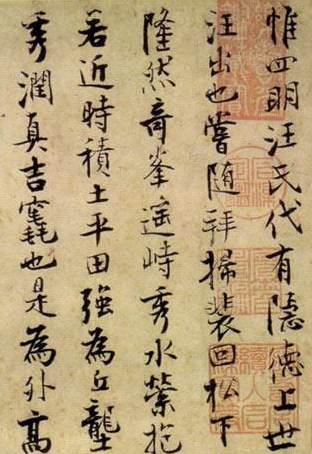 惟四明汪氏代有隱德上世
汪出也嘗隨拜掃裴回松下
隆然奇峯遥峙秀水縈抱
若近時積土平田強為丘壟
秀潤真吉竁也是為外高